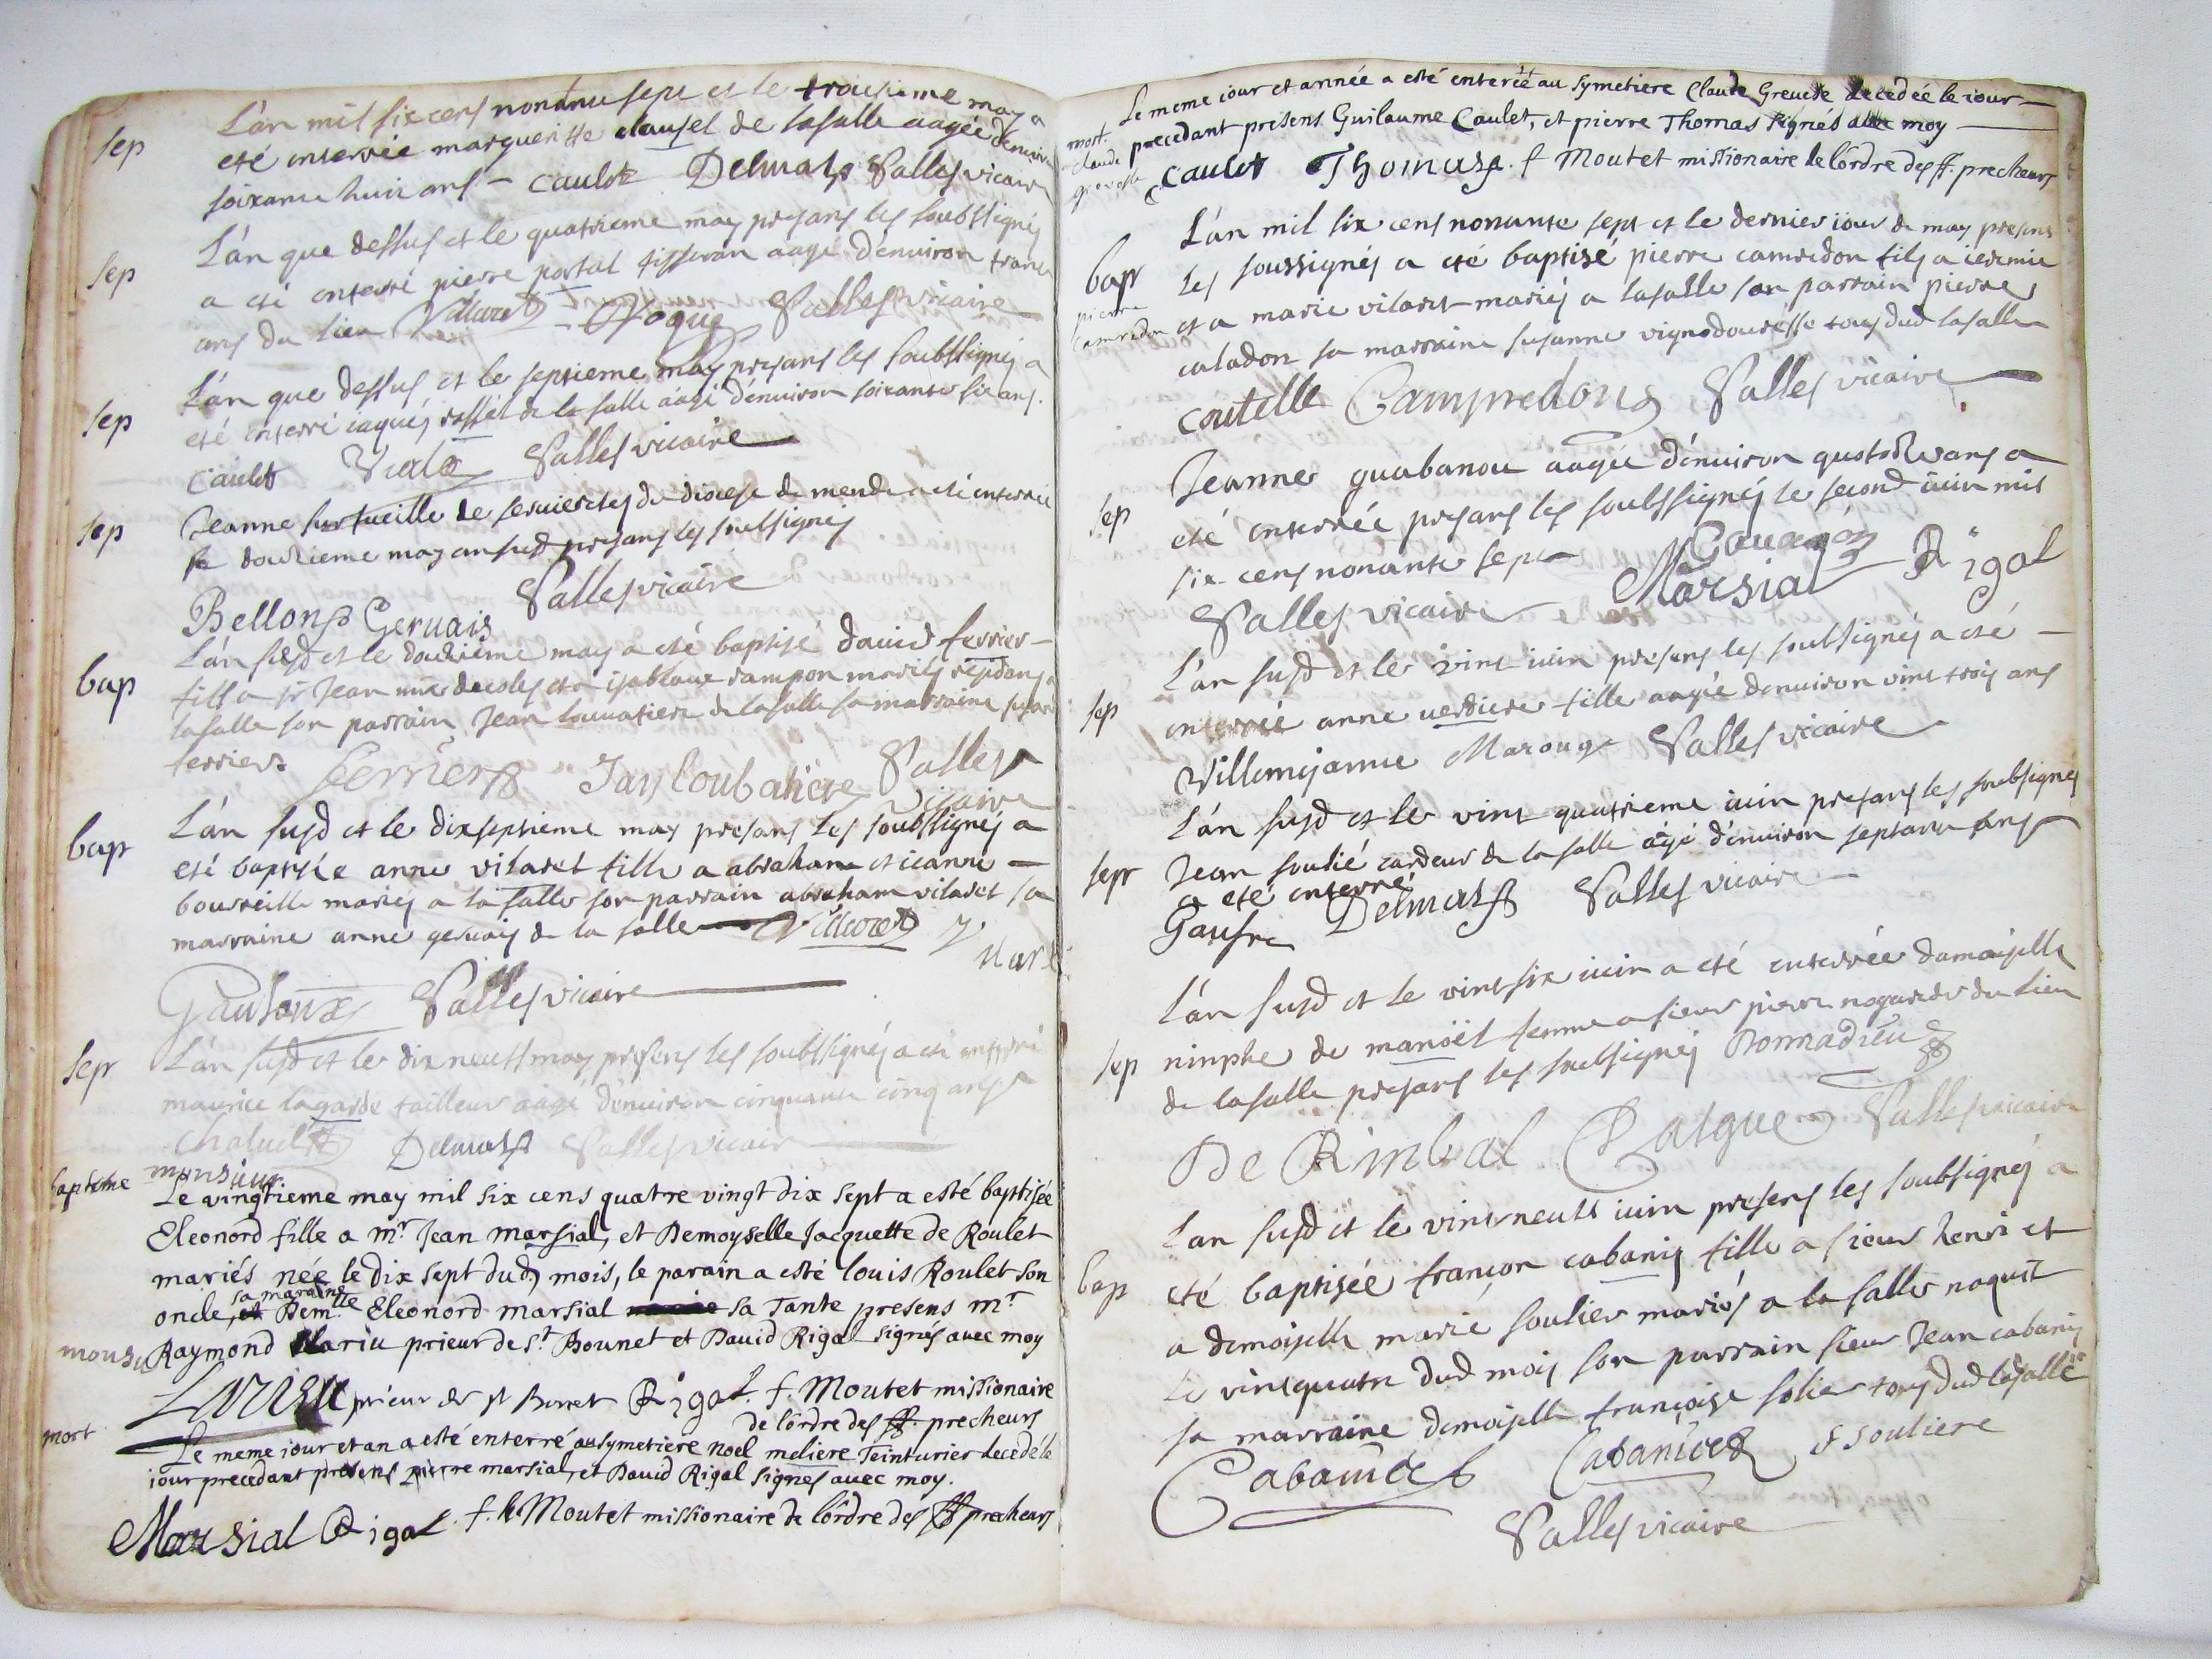 sep
L'an mil six cens nonante sept et le troisieme may a
eté enterrée margueritte clausel de lasalle aagée denviron
soixante huit ans - Caulet Delmas Salles vicaire
sep
L'an que dessus et le quatrieme may presans les soubssignés
a eté enterré pierre portal tisseran aagé d'enuiron trante
ans du lieu Vilaret Salles vicaire
sep
L'an que dessus et le septieme may presans les soubssignés a
eté enterré iaques de la salle aagé d'enuiron soixante six ans.
Caulet Viala Salles vicaire
sep
Jeanne de du diocese de mende a eté enterrée
le douzieme may an susd presans les soubsignés
Bellon Gervais Salles vicaire
bap
L'an susd et le douzieme may a eté baptisé dauid ferrier
fils a sr Jean et a isabeau rampon mariés
lasalle son parrain Jean louuatiere de lasalle sa marraine
ferriere ferrier Jan loubatiere Salles
vicaire
bap
L'an susd et le dixseptieme may presans les soubssignés a
eté baptisée anne vilaret fille a abraham et ieanne
bourreille mariés a la salle son parrain abraham vilaret sa
marraine anne gervais de la salle Vilaret
Salles vicaire
sep
L'an susd et le dix neuf may presens les soubssignés a eté enterré
maurice lagarde tailleur aagé d'enuiron cinquante cinq ans
Delmas Salles vicaire
bapteme
monsieur
Le vingtieme may mil six cens quatre vingt dix sept a esté baptisée
Eleonord fille a mr Jean marsial, et Demoyselle Jacquette de Roulet
mariés née le dix sept dud) mois, le parain a esté louis Roulet son
oncle, sa maraine Demlle Eleonord marsial sa Tante presens mr
Raymond lariu prieur de st Bounet et Dauid Rigal signés avec moy
mousu
prieur de st Bonet Rigal. f. Moutet missionaire
de lôrdre des ff. precheurs
mort
Le meme iour et an a esté enterré au symetiere noel meliere Teinturier decedé le
iour precedant presens pierre marsial, et Dauid Rigal signés avec moy.
Marsial Rigal f. Moutet missionaire de lôrdre des ff precheurs
Le meme iour et année a esté enterée au symetiere Claude Greuese decedée le iour
precedant presens Guilaume Caulet, et pierre Thomas signés avec moy
mort
claude
Caulet Thomas f Moutet missionaire de lôrdre des ff. precheurs
bap
pierre
Camredon
L'an mil six cens nonante sept et le dernier iour de may presens
les soussignés a eté baptisé pierre camredon fils a ieremie
et a marie vilaret mariés a lasalle son parrain pierre
caladon sa marraine susanne vignodouresse tous dud lasalle
coutelle Campredons Salles vicaire
sep
Jeanne guabanou aagée d'enuiron quatorze ans a
eté enterrée presans les soubssignés le second iuin mil
six cens nonante sept
Marsial Rigal
Salles vicaire
sep
L'an susd et le vint iuin presens les soubsignés a eté
enterrée anne verdiere fille aagée denuiron vint trois ans
Villemejanne Marouge Salles vicaire
sep
L'an susd et le vint quatrieme iuin presans les soubsignés
Jean soulié cardeur de la salle agé d'enuiron septante ans
a eté enterré
Gaufre Delmas Salles vicaire
sep
L'an susd et le vint six iuin a eté enterrée damaiselle
ninphe de manoël femme a sieur pierre nogarede du lieu
de lasalle presans les soubsignés Donnadieu
De Rimbal Salles vicaire
bap
L'an susd et le vint neuf iuin presens les soubsignés a
eté baptisée françon cabanis fille a sieur henri et
a demoiselle marie soulier mariés a la salle naquit
le vint quatre dud mois son parrain sieur Jean cabanis
sa marraine demoiselle françoise solier tous dud lasalle
Cabanis Cabanis f souliere
Salles vicaire